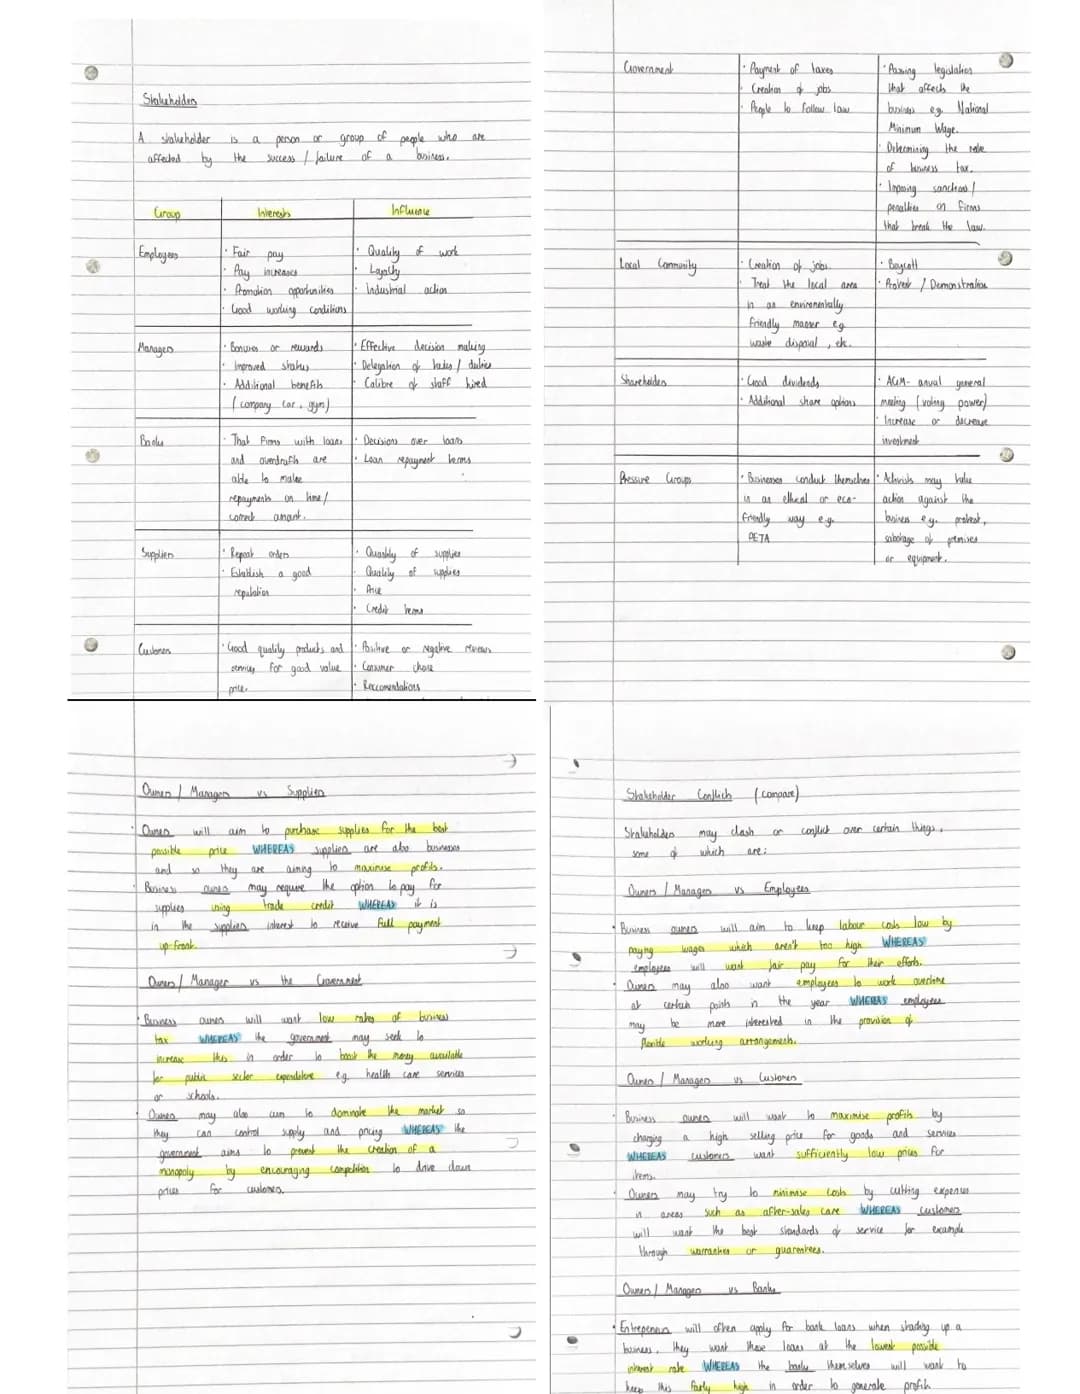 Stakeholders
A stakeholder is a person or group of people who are
affected by the success / failure of a business.
Group Interests Influence
Employees
· Fair pay
· Pay increases
· Promotion opportunities
· Good working conditions
· Quality of work
· Loyalty
· Industrial action
Managers
· Bonuses or rewards
· Improved status
· Additional benefits
(company car, gym)
· Effective decision making
· Delegation of tasks / duties
· Calibre of staff hired
Banks
· That firms with loans
and overdrafts are
able to make
repayments on time/
correct amount.
· Decisions over loans
· Loan repayment terms
Suppliers
· Repeat orders
· Establish a good
reputation
· Quantity of supplies
· Quality of supplies
· Price
· Credit terms
Customers
· Good quality products and
services for good value
price.
· Positive or negative reviews
· Consumer choice
· Reccomendations
Government
· Payment of taxes
· Creation of jobs
· People to follow law
· Passing legislation
that affects the
business eg. National
Minimum Wage.
· Determining the rate
of business tax.
· Imposing sanctions /
penalties on firms
that break the law.
Local Community
· Creation of jobs.
· Treat the local area
in an environmentally
friendly manner eg
waste disposal, etc.
· Boycott
· Protest / Demonstration
Shareholders
· Good dividends
· Additional share options
· AGM- anual general
meeting (voting power)
· Increase or decrease
investment
Pressure Groups
· Businesses conduct themselves
in an ethical or eco-
friendly way e.g.
PETA
· Activists may take
action against the
business e.g. protest,
sabotage of premises
or equipment.
Owners / Managers vs Suppliers
· Owners will aim to purchase supplies for the best
possible price WHEREAS suppliers are also businesses
and so they are aiming to maximise profits.
· Business owners may require the option to pay for
supplies using trade credit WHEREAS it is
in the suppliers interest to receive full payment
up-front.
Owners / Manager vs the Government
· Business owners will want low rates of business
tax WHEREAS the government may seek to
increase this in order to boost the money available
for public sector expenditure e.g. health care services
or schools.
· Owners may also aim to dominate the market so
they can control supply and pricing WHEREAS the
government aims to prevent the creation of a
monopoly by encouraging competition to drive down
prices for customers.
Stakeholder Conflicts (compare)
Stakeholders may clash or conflict over certain things,
some of which are:
Owners / Managers vs Employees
· Business owners will aim to keep labour costs low by
paying wages which aren't too high WHEREAS
employees will want fair pay for their efforts.
· Owners may also want employees to work overtime
at certain points in the year WHEREAS employees
may be more interested in the provision of
flexible working arrangements.
Owners / Managers vs Customers
· Business owners will want to maximise profits by
charging a high selling price for goods and services
WHEREAS customers want sufficiently low prices for
items.
· Owners may try to minimise costs by cutting expenses
in areas such as after-sales care WHEREAS customers
will want the best standards of service for example
through warranties or guarantees.
Owners / Managers vs Banks
· Entrepeneurs will often apply for bank loans when starting up a
business. They want these loans at the lowest possible
interest rate WHEREAS the banks themselves will want to
keep this fairly high in order to generate profit.